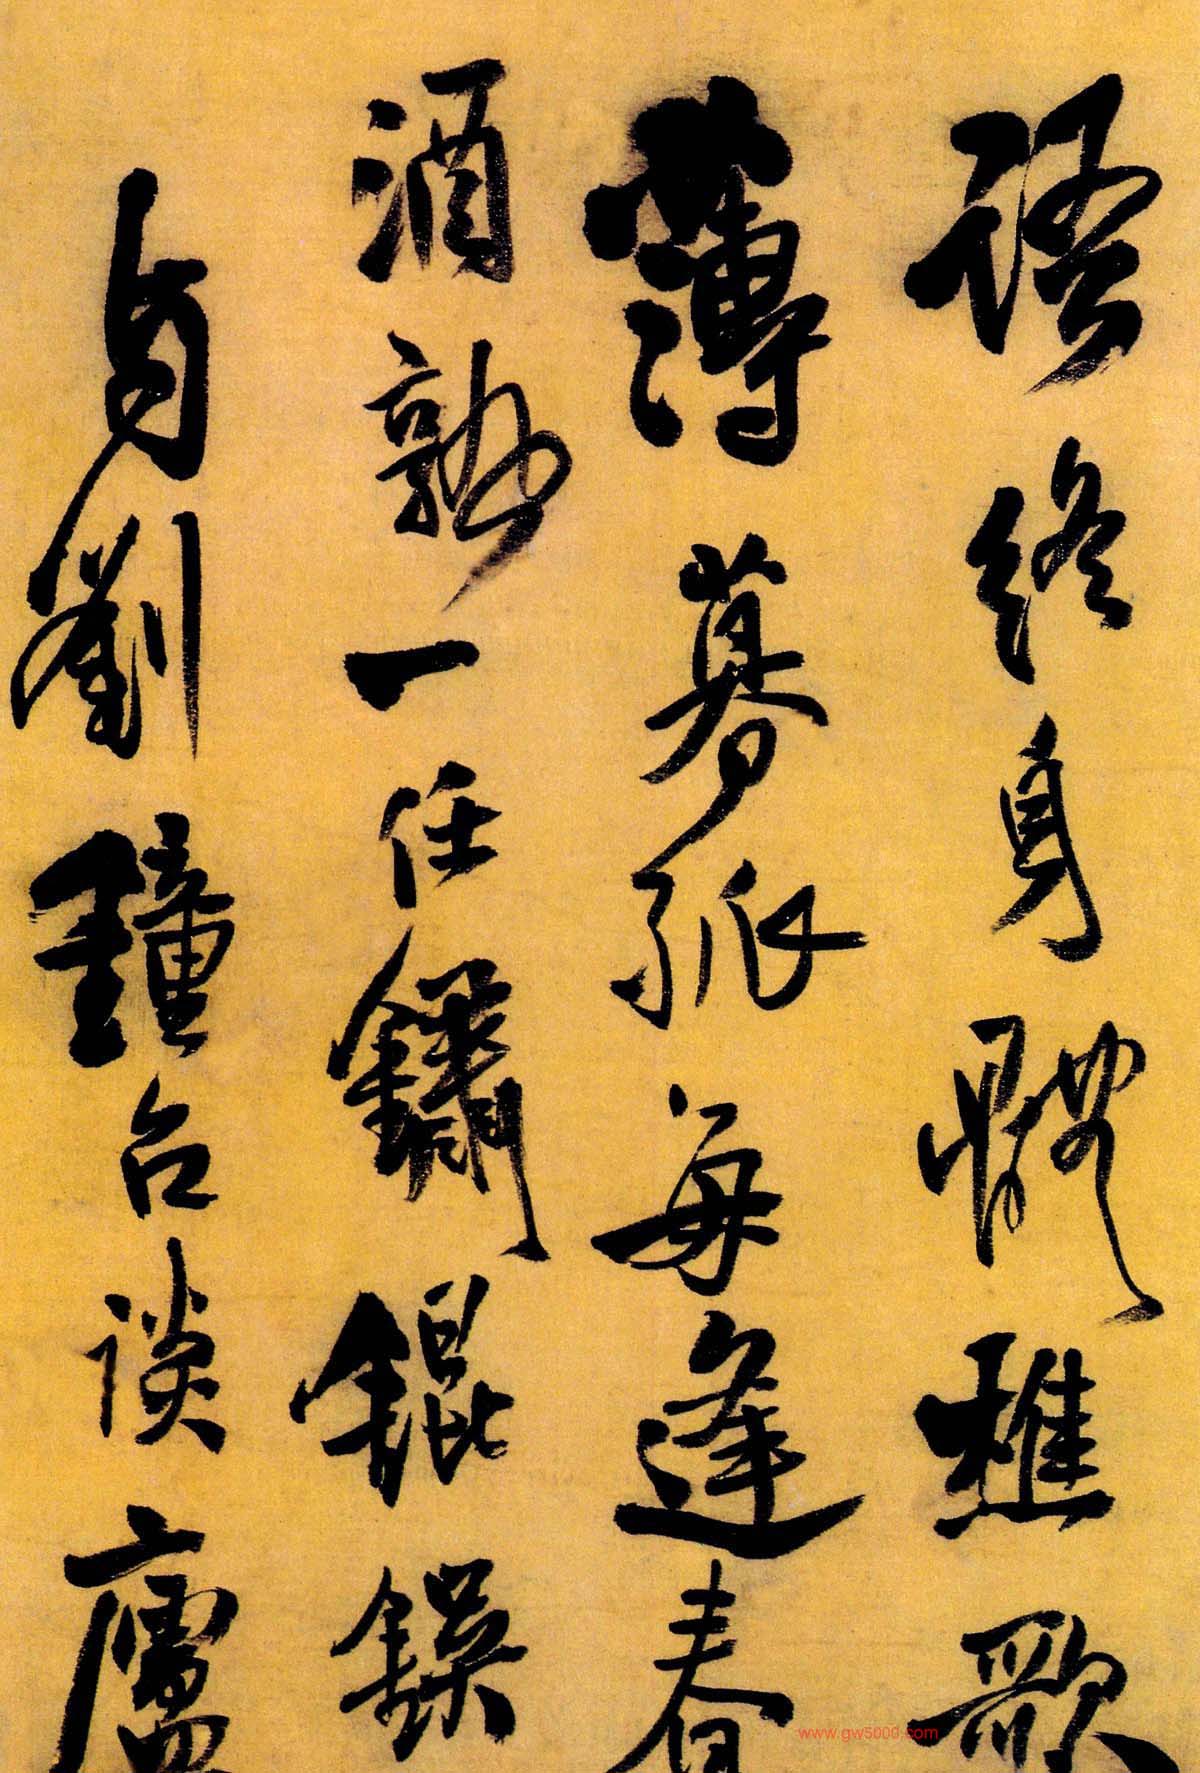 語終身樵歌
薄暮孤每逢春
酒熟一任鏽錕鋘
劉鐘台談廬
www.gw5000.com